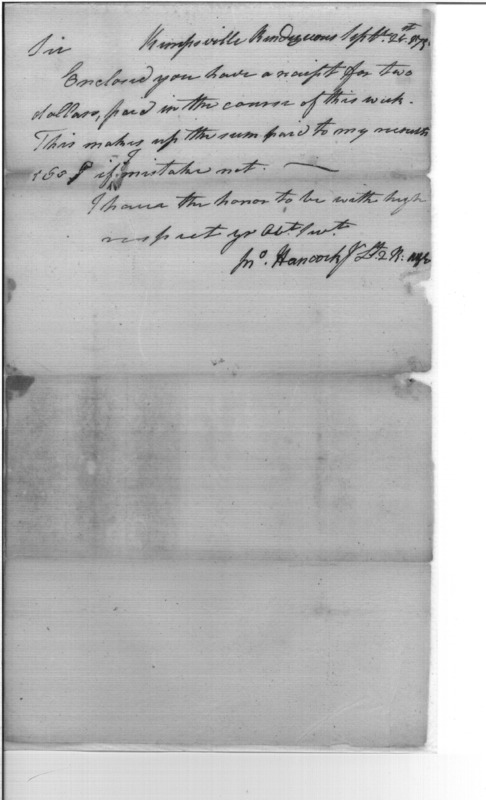 Sir Kempsville Rendezvous Sept. 26th
Enclosed you have a reciept for two
dollars, paid in the course of this week.
This makes up the sum paid to my recruits
168 $ if I mistake not.
I have the honor to be with high
respect yr Obt. Servt.
Jno. Hancock Jr Lt 2 R: